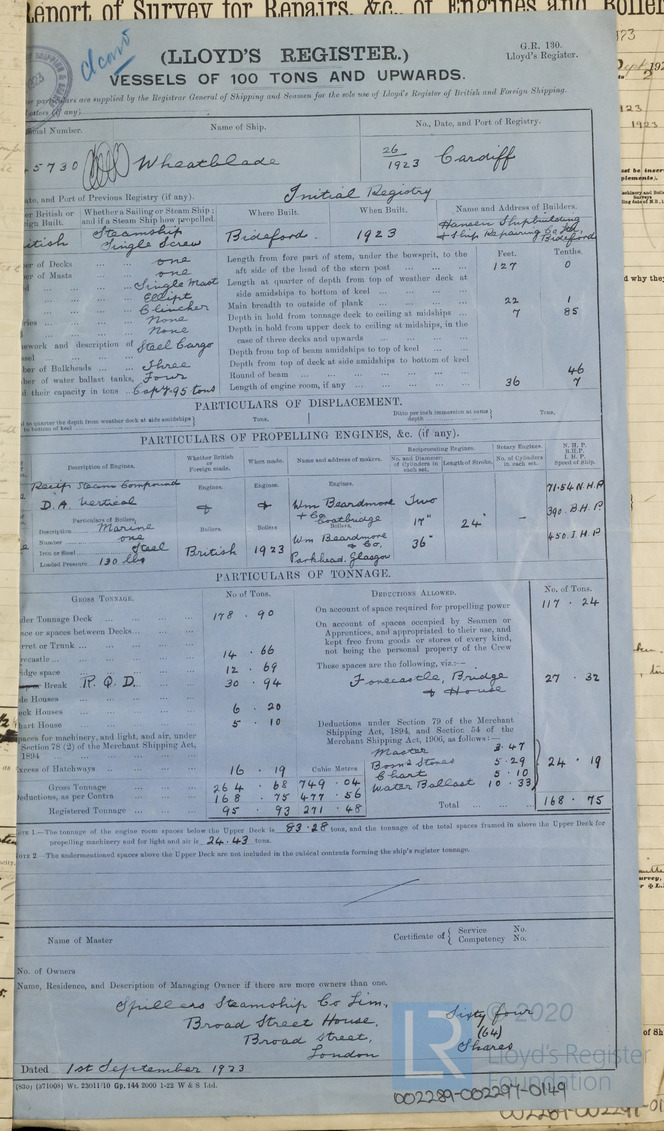 Report of Survey for Repairs, &c., of Engines and Boiler
G.R. 130.
Lloyd's Register.
(LLOYD'S REGISTER.)
VESSELS OF 100 TONS AND UPWARDS.
particulars are supplied by the Registrar General of Shipping and Seamen for the sole use of Lloyd's Register of British and Foreign Shipping.
Number. Name of Ship. No., Date, and Port of Registry.
5730 Wheatblade 26/1923 Cardiff
and Port of Previous Registry (if any). Initial Registry
British or Built. Whether a Sailing or Steam Ship; and if a Steam Ship how propelled. Where Built. When Built. Name and Address of Builders.
itish Steamship Single Screw Bideford 1923 Hansen Shipbuilding & Ship Repairing Co Ltd, Bideford
er of Decks ... one
er of Masts ... one
Single Mast
Ellipt
Clincher
None
None
ework and description of Steel Cargo
ber of Bulkheads ... Three
ber of water ballast tanks, Four
their capacity in tons ... Capy. 95 tons
Feet. Tenths.
Length from fore part of stem, under the bowsprit, to the aft side of the head of the stern post ... 127 0
Length at quarter of depth from top of weather deck at side amidships to bottom of keel ...
Main breadth to outside of plank ... 22 1
Depth in hold from tonnage deck to ceiling at midships ... 7 85
Depth in hold from upper deck to ceiling at midships, in the case of three decks and upwards ...
Depth from top of beam amidships to top of keel ...
Depth from top of deck at side amidships to bottom of keel
Round of beam ... 46
Length of engine room, if any ... 36 7
PARTICULARS OF DISPLACEMENT.
to quarter the depth from weather deck at side amidships to bottom of keel Tons. Ditto per inch immersion at same depth Tons.
PARTICULARS OF PROPELLING ENGINES, &c. (if any).
Description of Engines. Whether British or Foreign made. When made. Name and address of makers. Reciprocating Engines. Rotary Engines. N.H.P. B.H.P. I.H.P. Speed of Ship.
No. and Diameter of Cylinders in each set. Length of Stroke. No. of Cylinders in each set.
Engines. Engines. Engines.
Recip Steam Compound
D.A. Vertical
Wm Beardmore & Co. Coatbridge Two 17" 36" 24" – 71.54 N.H.P 390. B.H.P 450. I.H.P
Particulars of Boilers. Boilers. Boilers. Boilers.
Description Marine
Number one
Iron or Steel Steel
Loaded Pressure 130 lbs
British 1923 Wm Beardmore & Co. Parkhead. Glasgow
PARTICULARS OF TONNAGE.
GROSS TONNAGE. No of Tons. DEDUCTIONS ALLOWED. No. of Tons.
der Tonnage Deck ... 178 . 90
ce or spaces between Decks ...
rret or Trunk ...
recastle ... 14 . 66
idge space ... 12 . 69
Break R.Q.D. ... 30 . 94
de Houses ...
eck Houses ... 6 . 20
hart House ... 5 . 10
paces for machinery, and light, and air, under Section 78 (2) of the Merchant Shipping Act, 1894
xcess of Hatchways ... 16 . 19 Cubic Metres
Gross Tonnage ... 264 . 68 749 . 04
eductions, as per Contra ... 168 . 75 477 . 56
Registered Tonnage ... 95 . 93 271 . 48
On account of space required for propelling power 117 . 24
On account of spaces occupied by Seamen or Apprentices, and appropriated to their use, and kept free from goods or stores of every kind, not being the personal property of the Crew
These spaces are the following, viz:—
Forecastle, Bridge & House 27 . 32
Deductions under Section 79 of the Merchant Shipping Act, 1894, and Section 54 of the Merchant Shipping Act, 1906, as follows:—
Master 3.47
Bosns Stores 5.29
Chart 5.10
Water Ballast 10.33
24 . 19
Total ... 168 . 75
NOTE 1.—The tonnage of the engine room spaces below the Upper Deck is 83.28 tons, and the tonnage of the total spaces framed in above the Upper Deck for
propelling machinery and for light and air is 24.43 tons.
NOTE 2.—The undermentioned spaces above the Upper Deck are not included in the cubical contents forming the ship's register tonnage.
Name of Master Certificate of { Service No. Competency No.
No. of Owners
Name, Residence, and Description of Managing Owner if there are more owners than one.
Spillers Steamship Co Lim,
Broad Street House,
Broad Street,
London
Sixty four
(64)
Shares
Dated 1st September 1923
(830) (371008) Wt. 23011/10 Gp. 144 2000 1-22 W & S Ltd.
LR
© 2020
Lloyd's Register
Foundation
002289-002297-0149